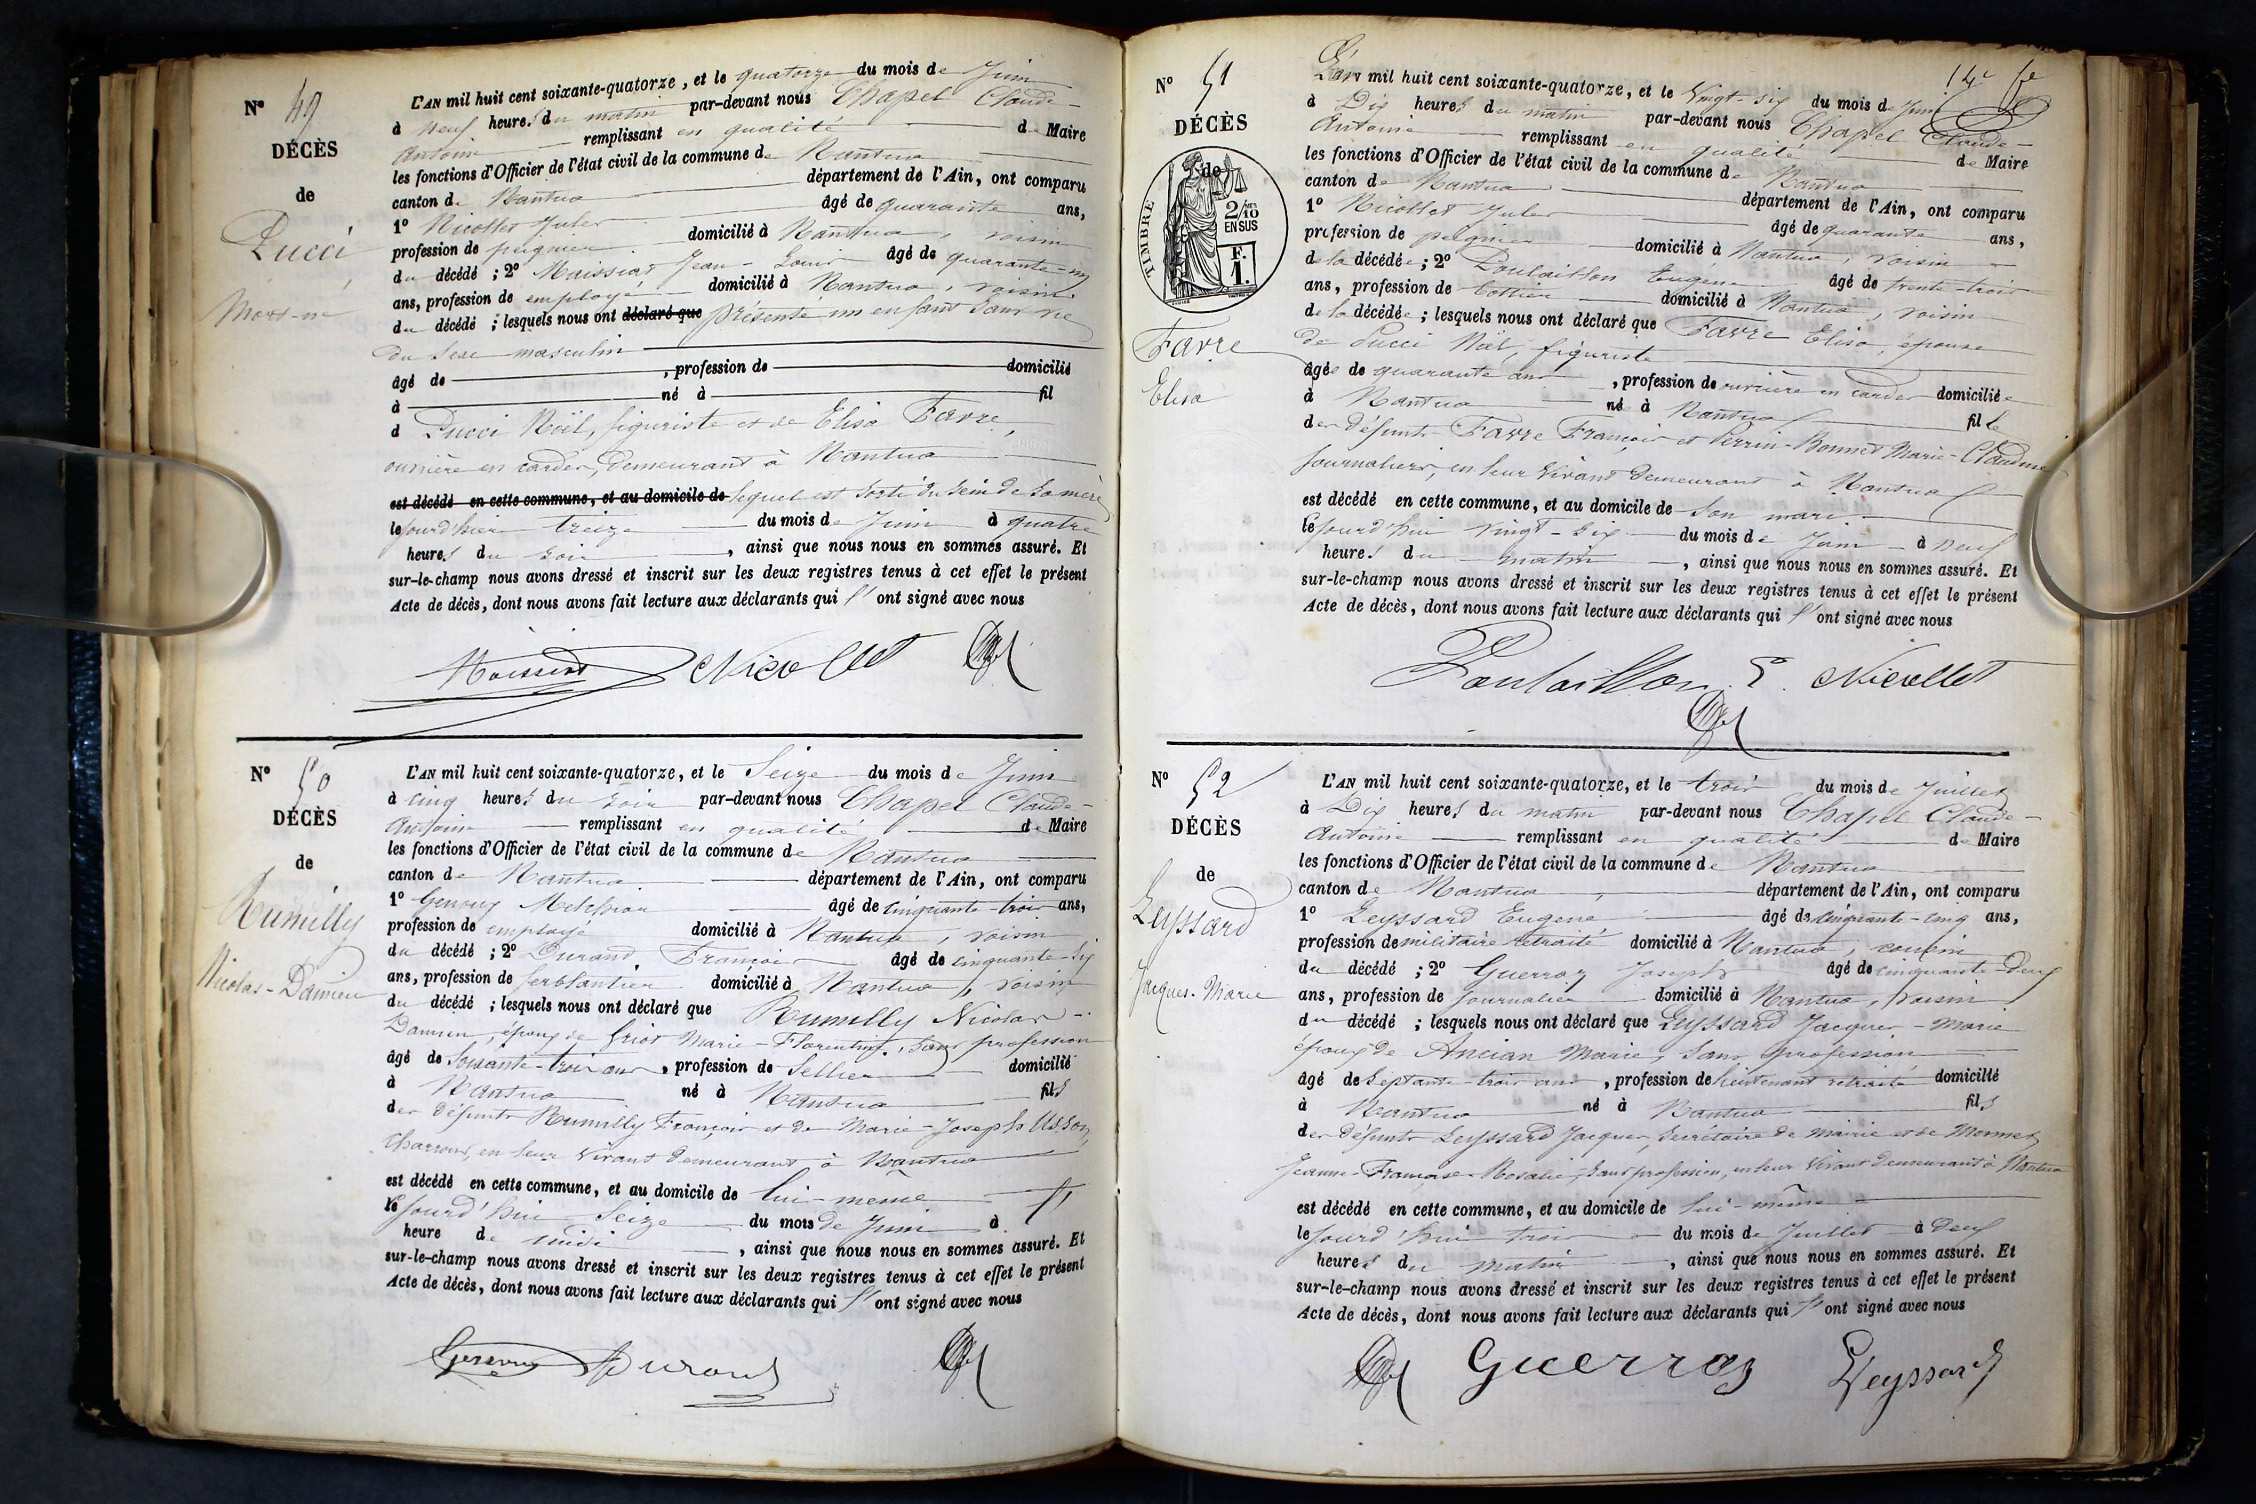 N° 49
DÉCÈS
de
Lucci
Mort-né
L'AN mil huit cent soixante-quatorze, et le quatorze du mois de Juin
à neuf heures du matin par-devant nous Chapel Claude-
Antoine remplissant en qualité de Maire
les fonctions d'Officier de l'état civil de la commune de Nantua
canton de Nantua département de l'Ain, ont comparu
1° Nicollet Jules âgé de quarante ans,
profession de peignier domicilié à Nantua, voisin
du décédé ; 2° Maissiat Jean-Louis âgé de quarante-un
ans, profession de employé domicilié à Nantua, voisin
du décédé ; lesquels nous ont déclaré que présenté un enfant sans vie
du sexe masculin
âgé de , profession de domicilié
à né à fil
d Lucci Noël, figuriste et de Elisa Favre,
ouvrière en cardes, demeurant à Nantua
est décédé en cette commune, et au domicile de lequel est sorti du sein de sa mère
le jourd'hier treize du mois de Juin à quatre
heures du soir , ainsi que nous nous en sommes assuré. Et
sur-le-champ nous avons dressé et inscrit sur les deux registres tenus à cet effet le présent
Acte de décès, dont nous avons fait lecture aux déclarants qui l' ont signé avec nous
Maissiat Nicollet
N° 50
DÉCÈS
de
Rumilly
Nicolas-Damien
L'AN mil huit cent soixante-quatorze, et le Seize du mois de Juin
à cinq heures du soir par-devant nous Chapel Claude-
Antoine remplissant en qualité de Maire
les fonctions d'Officier de l'état civil de la commune de Nantua
canton de Nantua département de l'Ain, ont comparu
1° Genoux Melchior âgé de cinquante-trois ans,
profession de employé domicilié à Nantua, voisin
du décédé ; 2° Durand François âgé de cinquante-six
ans, profession de ferblantier domicilié à Nantua, voisin
du décédé ; lesquels nous ont déclaré que Rumilly Nicolas-
Damien, époux de Griot Marie-Florentine, sans profession
âgé de soixante-trois ans, profession de Sellier domicilié
à Nantua né à Nantua fils
des défunts Rumilly François et de Marie-Joseph Usson,
charrons, en leur vivant demeurant à Nantua
est décédé en cette commune, et au domicile de lui-même
le jourd'hui Seize du mois de Juin à
heure de midi , ainsi que nous nous en sommes assuré. Et
sur-le-champ nous avons dressé et inscrit sur les deux registres tenus à cet effet le présent
Acte de décès, dont nous avons fait lecture aux déclarants qui l' ont signé avec nous
Genoux Durand
14e fe
N° 51
DÉCÈS
de
TIMBRE
2/10
EN SUS
F.
1.
Favre
Elisa
L'AN mil huit cent soixante-quatorze, et le Vingt-six du mois de Juin
à Dix heures du matin par-devant nous Chapel Claude-
Antoine remplissant en qualité de Maire
les fonctions d'Officier de l'état civil de la commune de Nantua
canton de Nantua département de l'Ain, ont comparu
1° Nicollet Jules âgé de quarante ans,
profession de peignier domicilié à Nantua, voisin
de la décédée ; 2° Poulaillon Eugène âgé de trente-trois
ans, profession de domicilié à Nantua, voisin
de la décédée ; lesquels nous ont déclaré que Favre Elisa, épouse
de Lucci Noël, figuriste
âgée de quarante ans , profession de ouvrière en cardes domiciliée
à Nantua né à Nantua fille
des défunts Favre François et Perrin-Bonnet Marie-Claudine
journaliers, en leur vivant demeurant à Nantua
est décédé en cette commune, et au domicile de son mari
le jourd'hui vingt-six du mois de Juin à neuf
heures du matin , ainsi que nous nous en sommes assuré. Et
sur-le-champ nous avons dressé et inscrit sur les deux registres tenus à cet effet le présent
Acte de décès, dont nous avons fait lecture aux déclarants qui l' ont signé avec nous
Poulaillon E. Nicollet
N° 52
DÉCÈS
de
Leyssard
Jacques-Marie
L'AN mil huit cent soixante-quatorze, et le trois du mois de Juillet
à Dix heures du matin par-devant nous Chapel Claude-
Antoine remplissant en qualité de Maire
les fonctions d'Officier de l'état civil de la commune de Nantua
canton de Nantua département de l'Ain, ont comparu
1° Leyssard Eugène âgé de cinquante-cinq ans,
profession de militaire retraité domicilié à Nantua, cousin
du décédé ; 2° Guerraz Joseph âgé de cinquante-deux
ans, profession de journalier domicilié à Nantua, voisin
du décédé ; lesquels nous ont déclaré que Leyssard Jacques-Marie
époux de Ancian Marie, sans profession
âgé de septante-trois ans , profession de lieutenant retraité domicilié
à Nantua né à Nantua fils
des défunts Leyssard Jacques, secrétaire de mairie et de Mermet
Jeanne-Françoise-Rosalie, sans profession, en leur vivant demeurant à Nantua
est décédé en cette commune, et au domicile de lui-même
le jourd'hui trois du mois de Juillet à deux
heures du matin , ainsi que nous nous en sommes assuré. Et
sur-le-champ nous avons dressé et inscrit sur les deux registres tenus à cet effet le présent
Acte de décès, dont nous avons fait lecture aux déclarants qui l' ont signé avec nous
Guerraz Leyssard